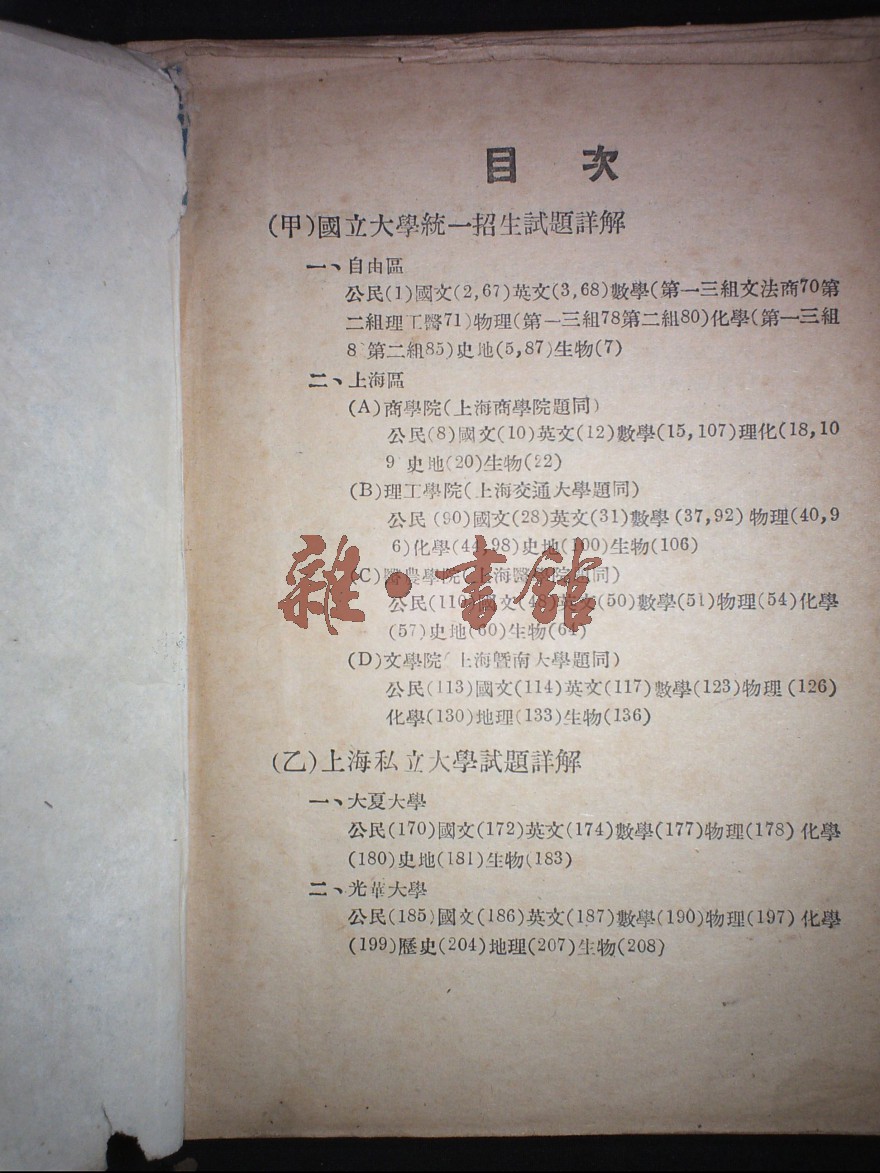 目次
(甲)國立大學統一招生試題詳解
一、自由區
公民(1)國文(2,67)英文(3,68)數學(第一三組文法商70第
二組理工醫71)物理(第一三組78第二組80)化學(第一三組
8 第二組85)史地(5,87)生物(7)
二、上海區
(A)商學院(上海商學院題同)
公民(8)國文(10)英文(12)數學(15,107)理化(18,10
9 史地(20)生物(22)
(B)理工學院(上海交通大學題同)
公民(90)國文(28)英文(31)數學(37,92)物理(40,9
6)化學(44,98)史地(100)生物(106)
(C)醫農學院(上海醫學院題同)
公民(110)國文(48)英文(50)數學(51)物理(54)化學
(57)史地(60)生物(64)
(D)文學院(上海暨南大學題同)
公民(113)國文(114)英文(117)數學(123)物理(126)
化學(130)地理(133)生物(136)
(乙)上海私立大學試題詳解
一、大夏大學
公民(170)國文(172)英文(174)數學(177)物理(178)化學
(180)史地(181)生物(183)
二、光華大學
公民(185)國文(186)英文(187)數學(190)物理(197)化學
(199)歷史(204)地理(207)生物(208)
雜·書館